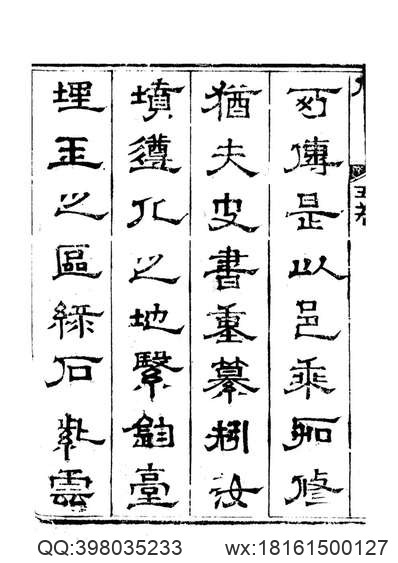 傳是以邑乘所修
猶夫史書重纂矧汝
墳遵化之地繄鈞臺
埋玉之區綠石紫雲
QQ:398035233 wx:18161500127